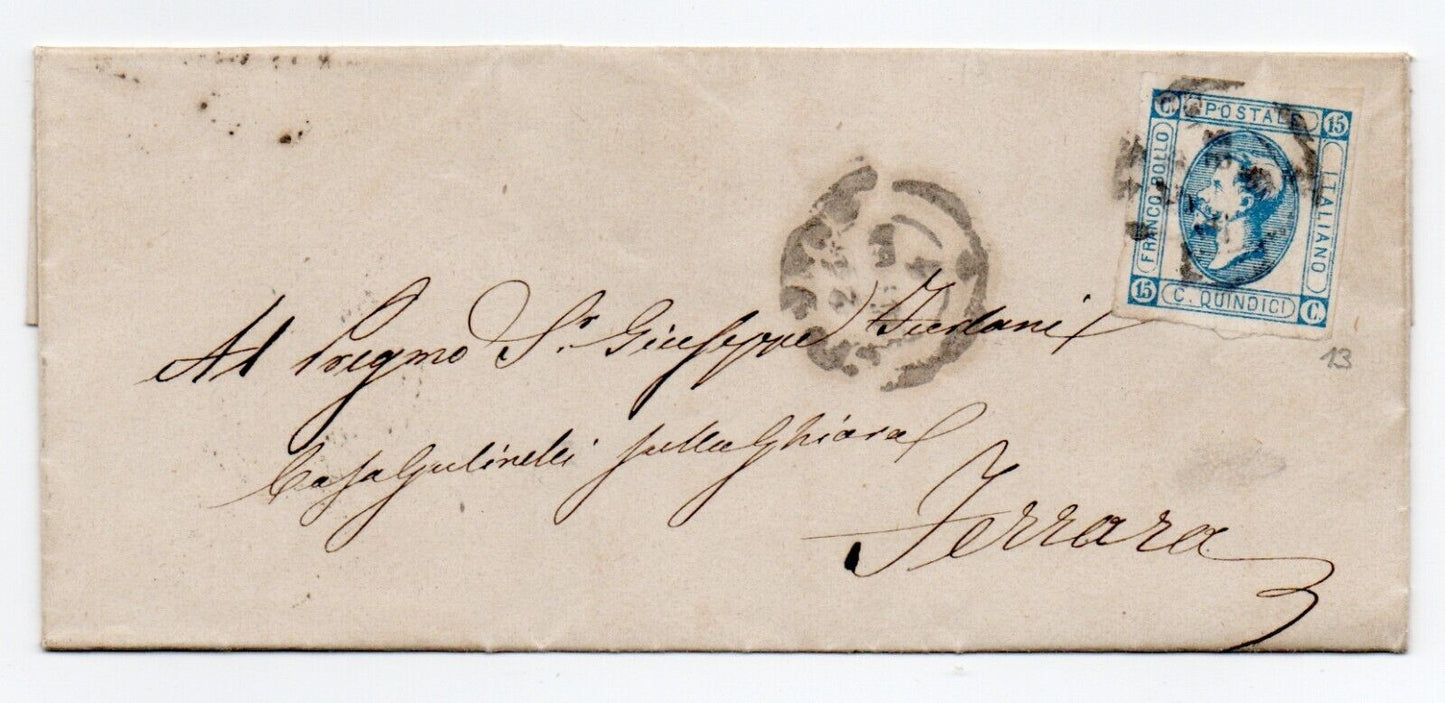 C. POSTALE 15
FRANCO BOLLO
ITALIANO
15 C. QUINDICI C.
22
Al Pregmo Sr. Giuseppe
Casa Gulinelli sulla Ghiara
Ferrara
13